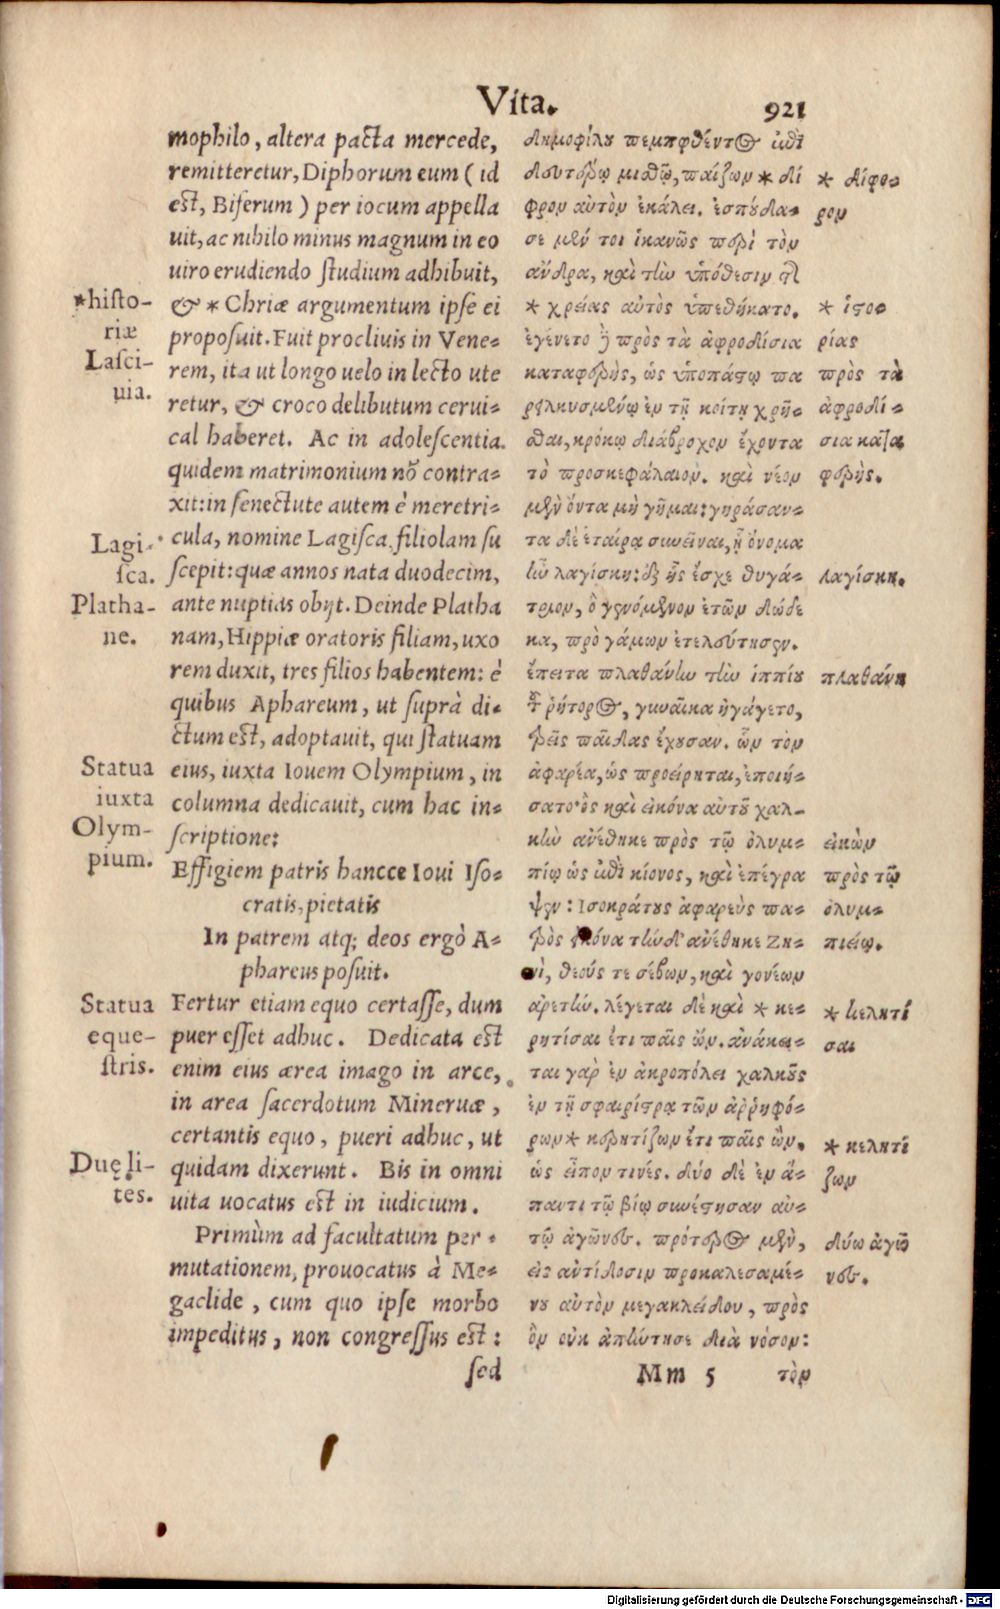 Vita.
921
mophilo, altera pacta mercede,
remitteretur, Diphorum eum (id
est, Biferum) per iocum appella
uit, ac nihilo minus magnum in eo
uiro erudiendo studium adhibuit,
& * Chriæ argumentum ipse ei
proposuit. Fuit procliuis in Vene-
rem, ita ut longo uelo in lecto ute
retur, & croco delibutum cerui-
cal haberet. Ac in adolescentia
quidem matrimonium nō contra-
xit: in senectute autem è meretri-
cula, nomine Lagisca, filiolam su
scepit: quæ annos nata duodecim,
ante nuptias obijt. Deinde Platha
nam, Hippiæ oratoris filiam, uxo
rem duxit, tres filios habentem: è
quibus Aphareum, ut suprà di-
ctum est, adoptauit, qui statuam
eius, iuxta Iouem Olympium, in
columna dedicauit, cum hac in-
scriptione:
Effigiem patris hancce Ioui Iso-
cratis, pietatis
In patrem atq; deos ergò A-
phareus posuit.
Fertur etiam equo certasse, dum
puer esset adhuc. Dedicata est
enim eius ærea imago in arce,
in area sacerdotum Mineruæ,
certantis equo, pueri adhuc, ut
quidam dixerunt. Bis in omni
uita uocatus est in iudicium.
Primùm ad facultatum per-
mutationem, prouocatus à Me-
gaclide, cum quo ipse morbo
impeditus, non congressus est:
sed
*histo-
riæ
Lasci-
uia.
Lagi-
sca.
Platha-
ne.
Statua
iuxta
Olym-
pium.
Statua
eque-
stris.
Duę li-
tes.
δημοφίλου πεμπφθέντος ἐπὶ
δευτέρῳ μισθῷ, παίζων * δί
φρον αὐτὸν ἐκάλει. ἐσπούδα-
σε μέν τοι ἱκανῶς περὶ τὸν
ἄνδρα, καὶ τὴν ὑπόθεσιν τῆς
* χρείας αὐτὸς ὑπεθήκατο.
ἐγένετο δὲ πρὸς τὰ ἀφροδίσια
καταφερὴς, ὡς ὑποπάστῳ πα
ρειλκυσμένῳ ἐν τῇ κοίτῃ χρῆ-
σθαι, κρόκῳ διάβροχον ἔχοντα
τὸ προσκεφάλαιον. καὶ νέον
μὲν ὄντα μὴ γῆμαι: γηράσαν-
τα δὲ ἑταίρᾳ συνεῖναι, ᾗ ὄνομα
ἦν λαγίσκη: ἐξ ἧς ἔσχε θυγά-
τριον, ὃ γενόμενον ἐτῶν δώδε
κα, πρὸ γάμων ἐτελεύτησεν.
ἔπειτα πλαθάνην τὴν ἱππίου
τοῦ ῥήτορος, γυναῖκα ἠγάγετο,
τρεῖς παῖδας ἔχουσαν. ὧν τὸν
ἀφαρέα, ὡς προείρηται, ἐποιή-
σατο· ὃς καὶ εἰκόνα αὐτοῦ χαλ-
κῆν ἀνέθηκε πρὸς τῷ ὀλυμ-
πίῳ ὡς ἐπὶ κίονος, καὶ ἐπέγρα
ψεν: Ἰσοκράτους ἀφαρεὺς πα-
τρὸς εἰκόνα τήνδ' ἀνέθηκε Ζη-
νὶ, θεούς τε σέβων, καὶ γονέων
ἀρετήν. λέγεται δὲ καὶ * κε-
ρητίσαι ἔτι παῖς ὤν. ἀνάκει-
ται γὰρ ἐν ἀκροπόλει χαλκοῦς
ἐν τῇ σφαιρίστρᾳ τῶν ἀῤῥηφό-
ρων * κερητίζων ἔτι παῖς ὢν,
ὡς εἶπον τινές. δύο δὲ ἐν ἅ-
παντι τῷ βίῳ συνέστησαν αὐ-
τῷ ἀγῶνες. πρότερος μὲν,
εἰς ἀντίδοσιν προκαλεσαμέ-
νου αὐτὸν μεγακλείδου, πρὸς
ὃν οὐκ ἀπήντησε διὰ νόσον:
Mm 5 τὸν
* δίφο-
ρον
* ἱστο-
ρίας
πρὸς τὰ
ἀφροδί-
σια κατα
φερὴς.
λαγίσκη.
πλαθάνη
εἰκὼν
πρὸς τῷ
ὀλυμ-
πιείῳ.
* κελητί
σαι
* κελητί
ζων
δύω ἀγῶ
νες.
Digitalisierung gefördert durch die Deutsche Forschungsgemeinschaft - DFG